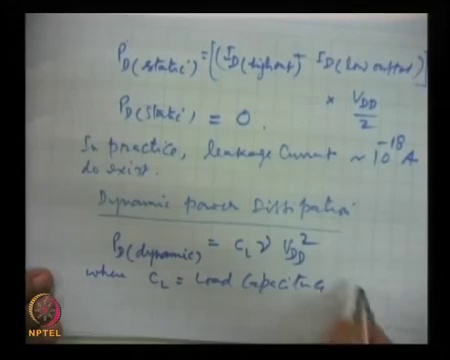 P_D(static) = [(I_D(high out) + I_D(low output)]
× V_DD/2
P_D(static) = 0.
In practice, leakage current ~ 10^-18 A
do exist.
Dynamic power Dissipation
P_D(dynamic) = C_L ν V_DD^2
where C_L = Load Capacitance
NPTEL